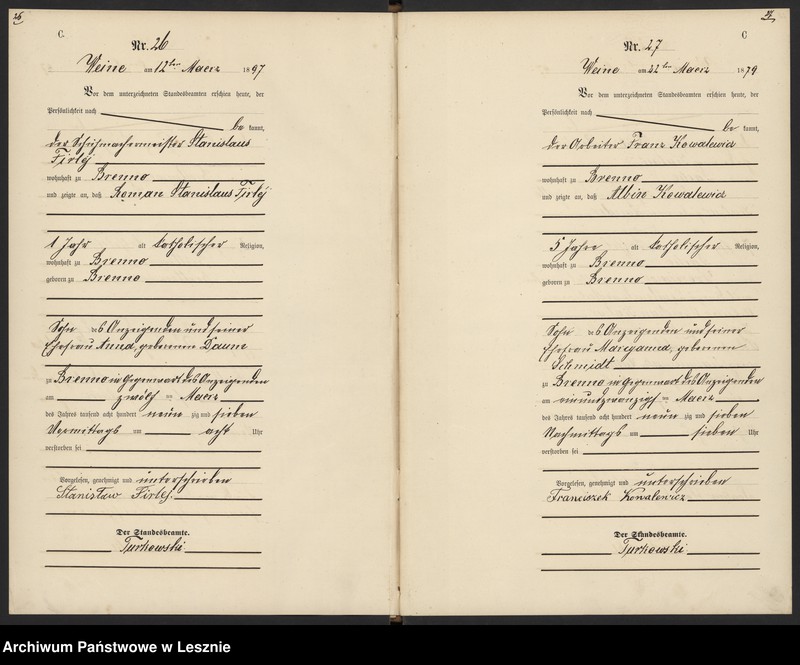 26
C.
Nr. 26
Weine am 12ten Maerz 1897
Vor dem unterzeichneten Standesbeamten erschien heute, der
Persönlichkeit nach
be kannt,
der Schuhmachermeister Stanislaus
Firlej
wohnhaft zu Brenno
und zeigte an, daß Roman Stanislaus Firlej
1 Jahr alt katholischer Religion,
wohnhaft zu Brenno
geboren zu Brenno
Sohn des Anzeigenden und seiner
Ehefrau Anna, geborenen Daum
zu Brenno in Gegenwart des Anzeigenden
am zwölf ten Maerz
des Jahres tausend acht hundert neun zig und sieben
Vormittags um acht Uhr
verstorben sei
Vorgelesen, genehmigt und unterschrieben
Stanisław Firlej.
Der Standesbeamte.
Turkowski
27
C
Nr. 27
Weine am 22ten Maerz 1879
Vor dem unterzeichneten Standesbeamten erschien heute, der
Persönlichkeit nach
be kannt,
der Arbeiter Franz Kowalewicz
wohnhaft zu Brenno
und zeigte an, daß Albin Kowalewicz
5 Jahre alt katholischer Religion,
wohnhaft zu Brenno
geboren zu Brenno
Sohn des Anzeigenden und seiner
Ehefrau Maryanna, geborenen
Schmidt
zu Brenno in Gegenwart des Anzeigenden
am einundzwanzigst en Maerz
des Jahres tausend acht hundert neun zig und sieben
Nachmittags um sieben Uhr
verstorben sei
Vorgelesen, genehmigt und unterschrieben
Franciszek Kowalewicz
Der Standesbeamte.
Turkowski
Archiwum Państwowe w Lesznie